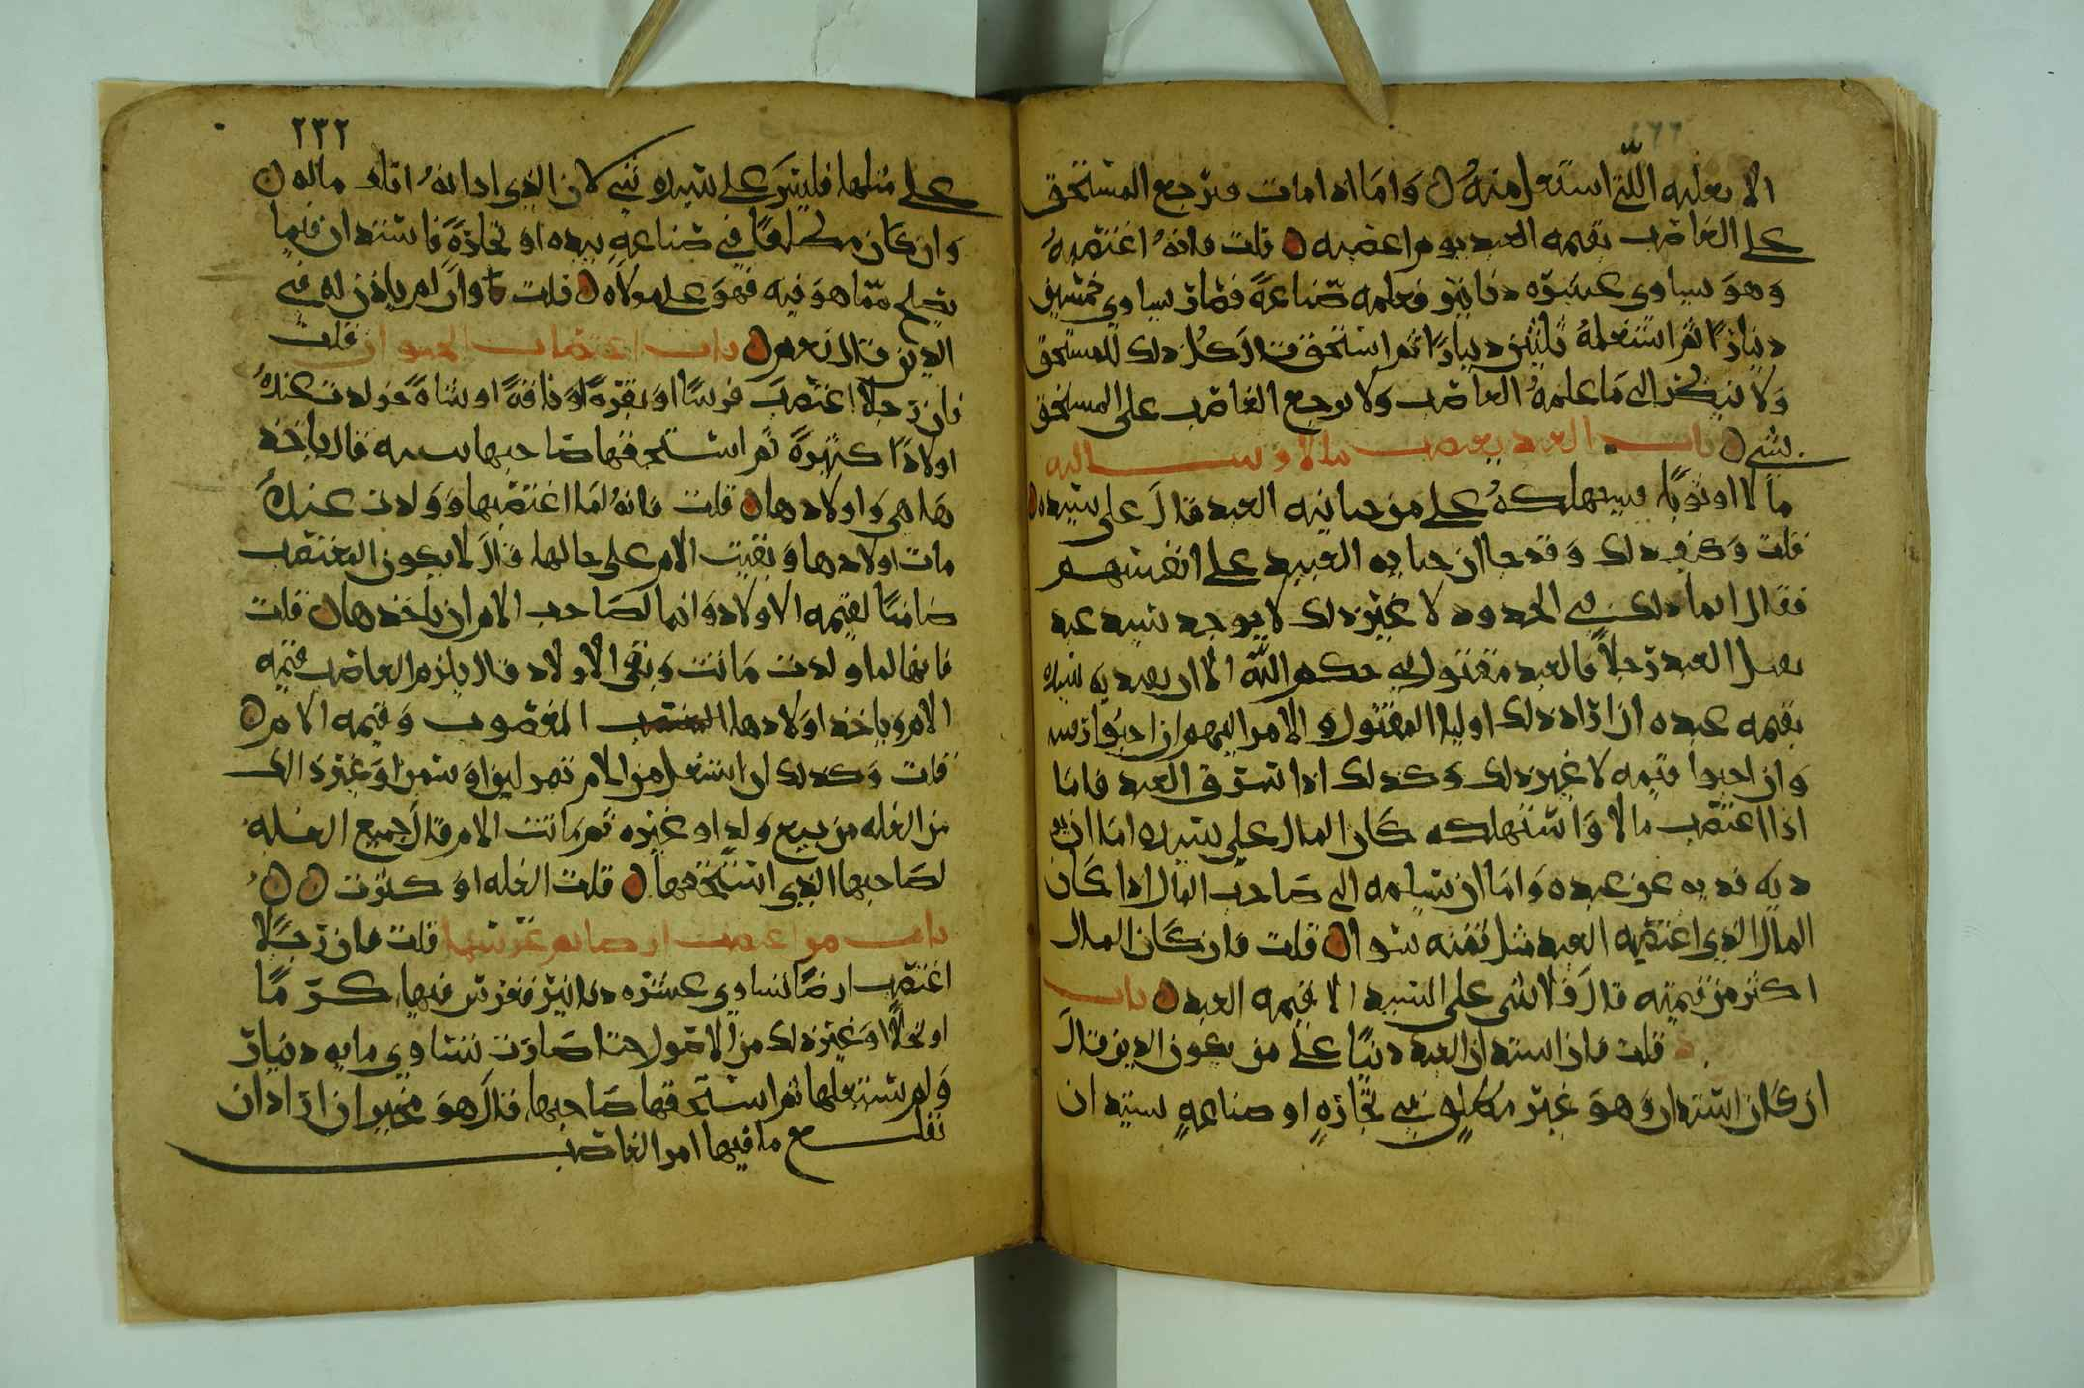 ٤٦٦
الا بغلته اللتي استغل منه ن وَامَا اذا مات فيرجع المستحق
على الغاصب بقيمه العبد يوم اغتصبه ن قلت فانهُ اغتصبهُ
وهوَ يساوي عشره دنانير فعلمه صناعةً فصار يساوي خمسين
دينارًا ثم استغلهُ ثلثين دينارًا ثم استحق قال كل ذلك للمستحق
وَلا ينظر الى مَا علمهُ الغاصب وَلا يرجع الغاصب على المستحق
بشي ن باب العبد يغصب مالا او
مالا اوثوبًا فيستهلكهُ على من جنايه العبد قالَ على سيده ن
قلت وَكيف ذلك وَقد جا ان جنايه العبيد على انفسهم
فقال انما ذلك في الحدود لا غير ذلك لا يوجد سيد عبد
يقتل العبد رجلاً فالعبد مقتول في حكم الله الا ان يفديه سيده
بقيمه عبده ان اراد ذلك اوليا المقتول والامر اليهم ان احبوا
وَان احبوا قيمه لا غير ذلك وَكذلك اذا سرق العبد فامَا
اذا اغتصب مالا وَاستهلكه كان المال على سيده امَا ان
ديه يديه عن عبده وَامَا ان يسلمه الى صَاحب المال اذا كان
المال الذي اغتصبه العبد مثل ثمنه سوا ن قلت فان كان المال
اكثر من قيمته قالَ فلا شي على السيد الا قيمه العبد ن باب
قلت فان استدان العبد دينًا على من يكون الدين قالَ
ان كان استدان وَهوَ غير مطلق في تجارهٍ او صناعهٍ ستدان
٢٣٢
على مثلها فليسَ على سيده شي لان الذي ادانهُ اتلف ماله ن
وَان كان مطلقًا في صناعهٍ بيده او تجارةً فاستدان فيما
يصلح ممّا هوَ فيه فهوَ على مولاه ن قلت وان لم ياذن له في
الدين قال نعم ن باب اغتصاب الحيوان قلت
فان رَجلاً اغتصبَ فرسًا اوَ بقرةً اوَ ناقةً او شاةً فولدت عندهُ
اولادًا كثيرةً ثم استحقها صَاحبها قال ياخذ
هَا هي وَاولادها ن قلت فانهُ لمَا اغتصبها وَوَلدت عندهُ
مات اولادها وَبقيت الام على حالها قالَ لا يكون المغتصب
ضامنًا لقيمه الاولاد وَانما لصَاحب الام ان ياخذها ن قلت
فانها لما ولدت مَاتت وَبقى الاولاد قال يلزم الغاصب قيمه
الام وياخذ اوَلادها المغصوب وَقيمه الام ن
قلت وَكذلك ان استغل من الام ثمر لبن اوَ سمن او غير ذلك
من الغله من بيع وَلدٍ او غيره ثم مَاتت الام قالَ جميع الغله
لصَاحبها الذي استحقها ن قلت الغله اوَ كثرت ن ن
باب من اغتصب ارضا ثم غرسها قلت فان رَجلًا
اغتصب ارضًا تساوي عشره دنانير فغرس فيها كرمًا
او نخلًا اوَ غير ذلك من الاصول حتا صَارت تساوي مايه دينار
وَلم يستغلها ثم استحقها صَاحبها قالَ هوَ مخير ان ارَاد ان
تقلع ما فيها امر الغاصب